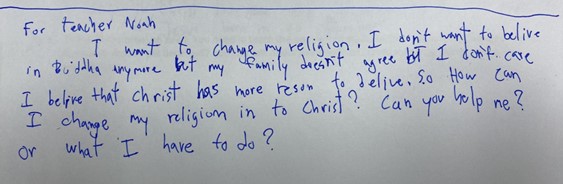 For teacher Noah
I want to change my religion. I don't want to belive
in Buddha anymore but my family doesn't agree but I don't care
I belive that christ has more reson to belive. So How can
I change my religion in to Christ? Can you help me?
Or what I have to do?